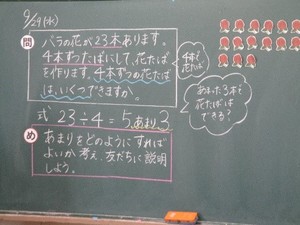 9/29(水)
問 バラの花が23本あります。
4本ずつたばにして、花たば
を作ります。4本ずつの花たば
は、いくつできますか。
4本で
花たば
あまった3本で
花たばは
できる?
式 23÷4=5あまり3
め あまりをどのようにすれば
よいか考え、友だちに説明
しよう。